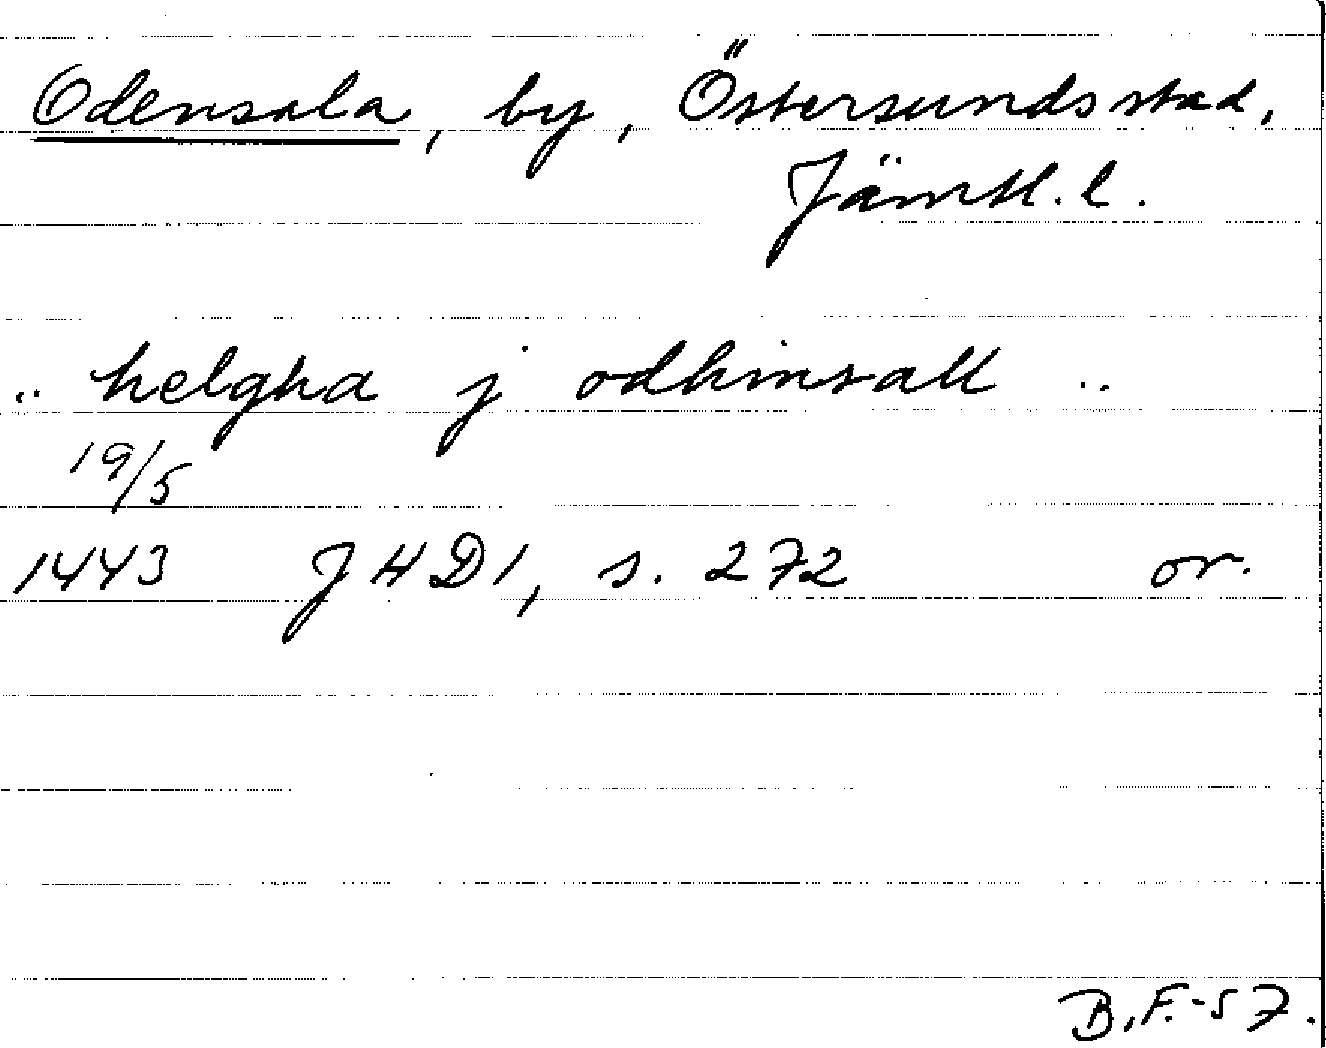 Odensala, by, Östersunds stad,
Jämtl. l.
.. helgha j odhinsall ..
19/5
1443 JHD1, s. 272 or.
B.F.-57.